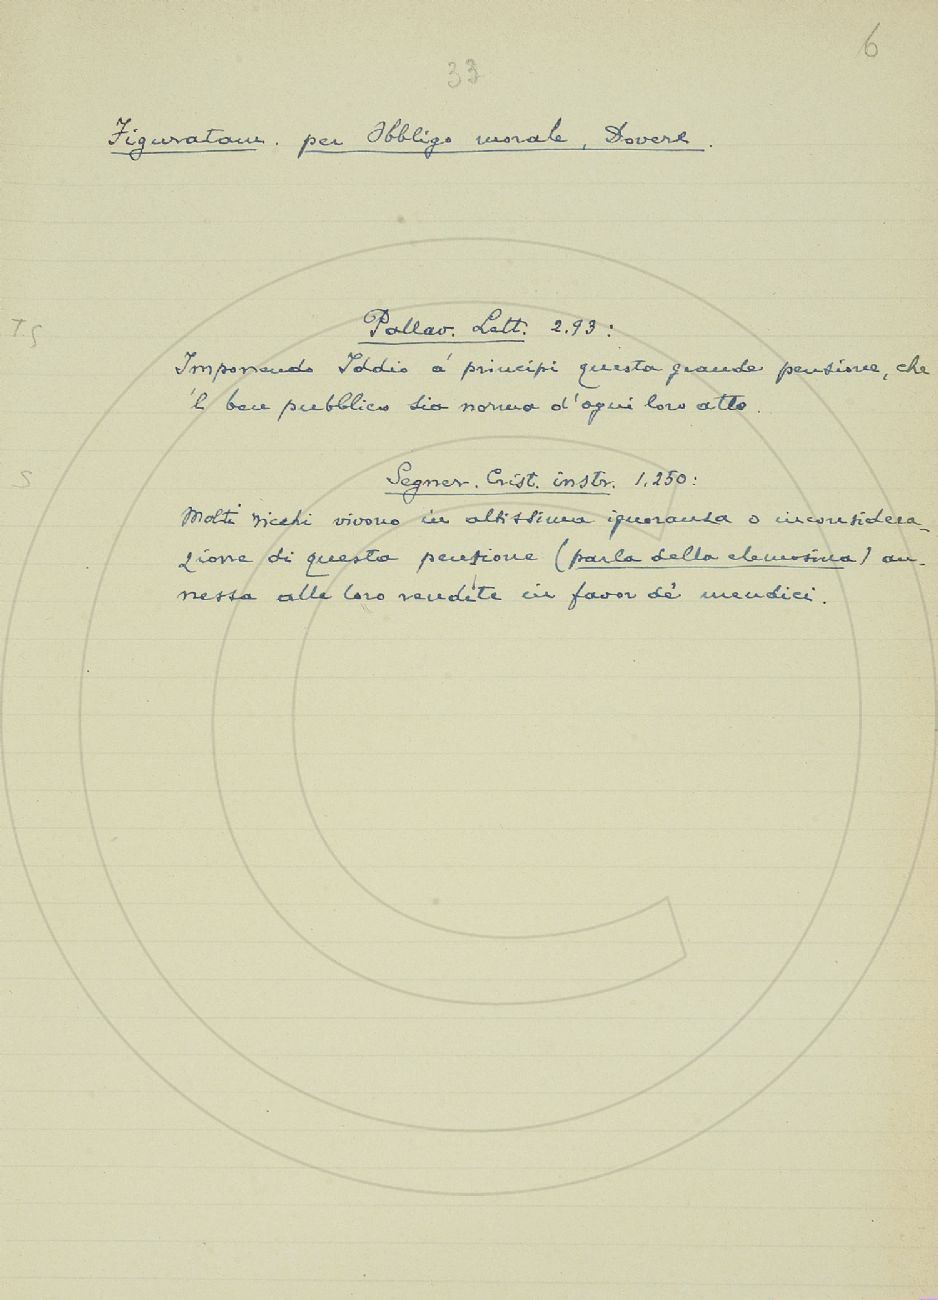 6
33
Figuratam. per Obbligo morale, Dovere.
T.S
Pallav. Lett. 2.93:
Imponendo Iddio a' principi questa grande pensione, che
'l ben pubblico sia norma d'ogni loro atto.
S
Segner. Crist. instr. 1.250:
Molti ricchi vivono in altissima ignoranza o inconsidera-
zione di questa pensione (parla della elemosina) an-
nessa alle loro rendite in favor de' mendici.